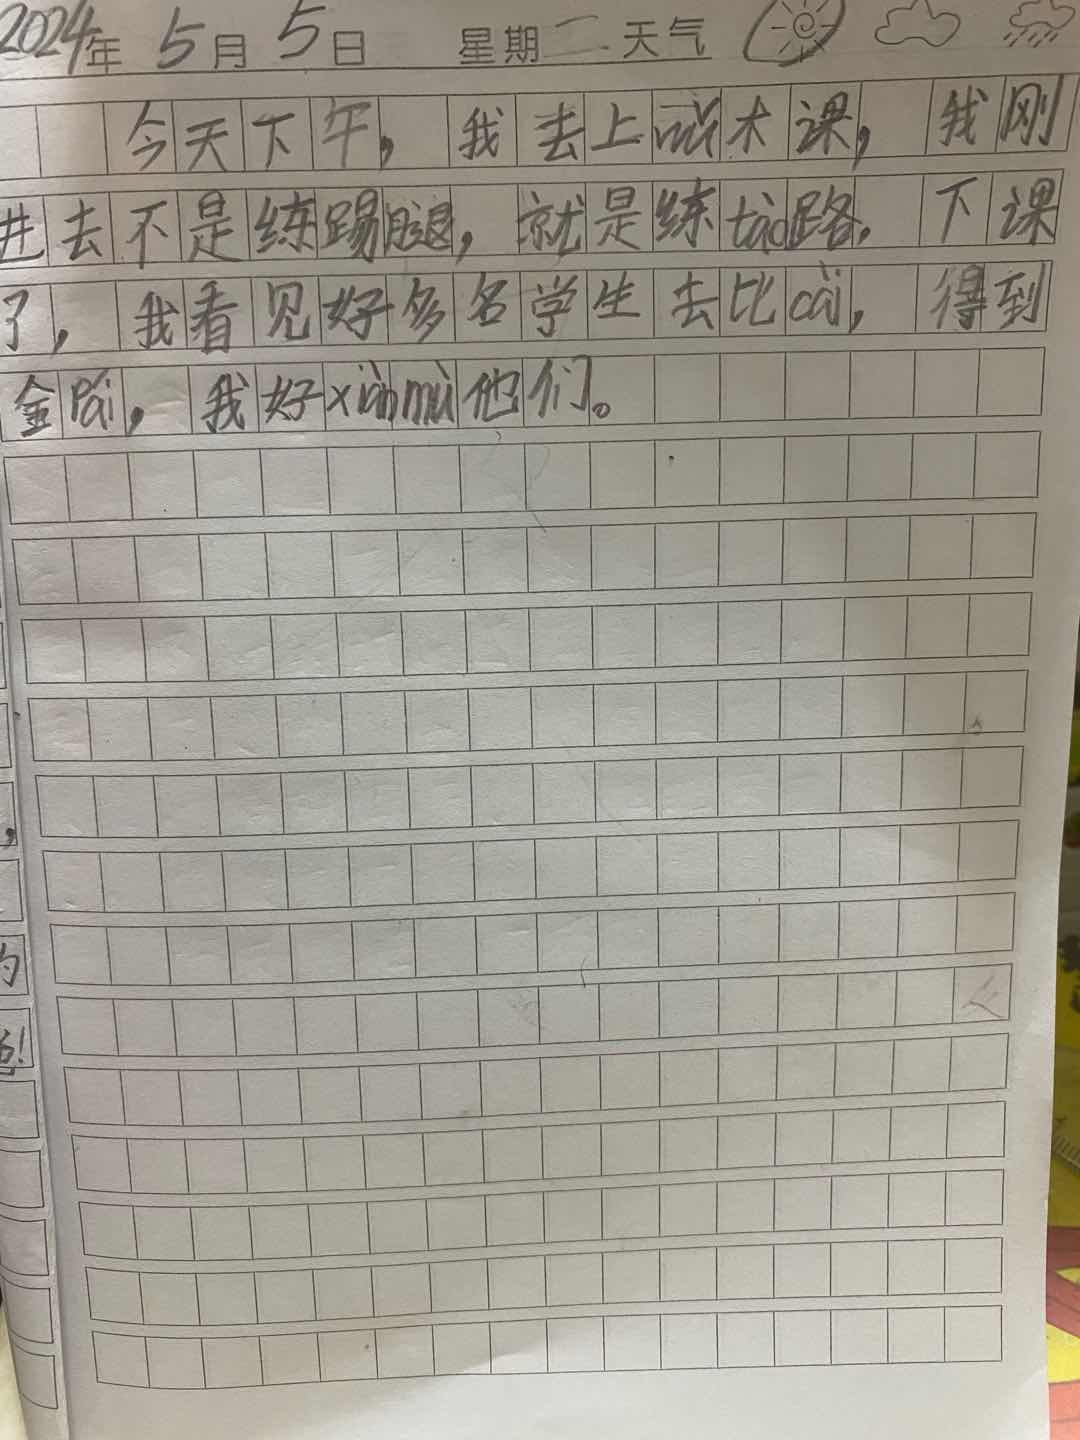 2024年 5月 5日 星期二 天气
今天下午，我去上wǔ术课，我刚
进去不是练踢腿，就是练tào路，下课
了，我看见好多名学生去比cài，得到
金Pái，我好xiànmù他们。
,
的
爸!